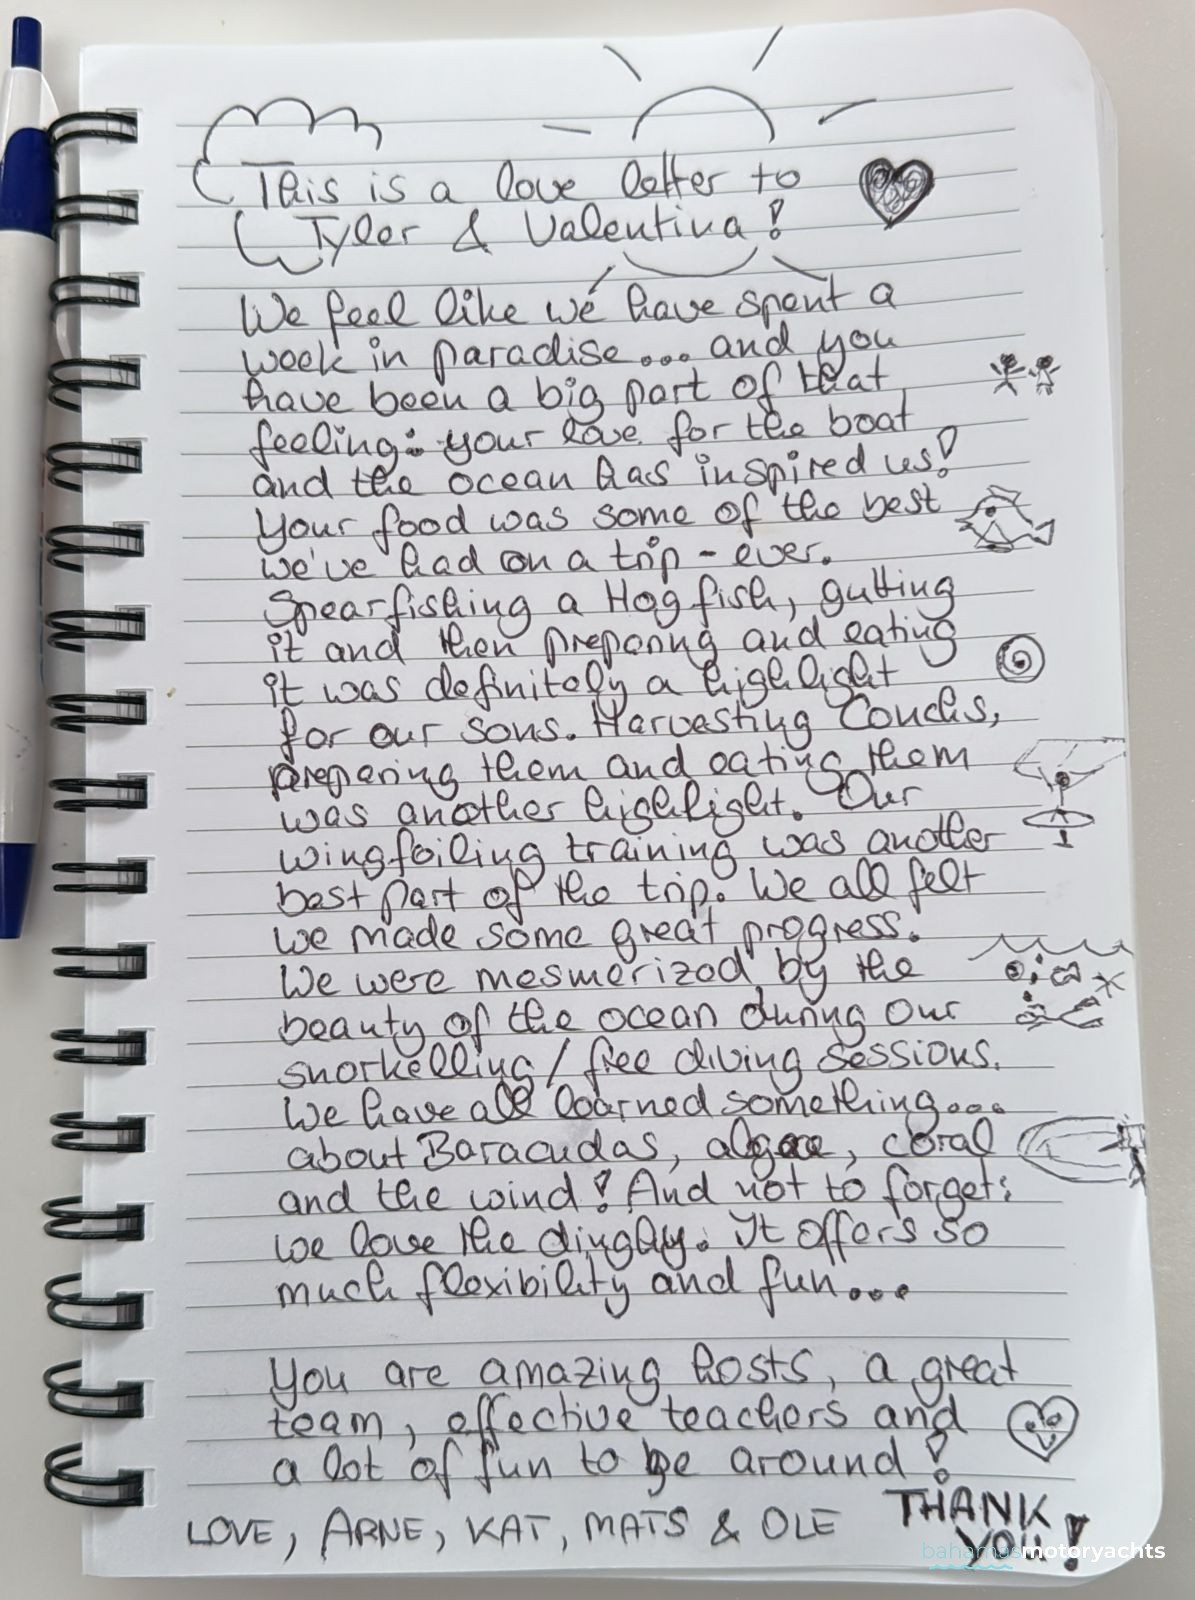 This is a love letter to
Tyler & Valentina!
We feel like we have spent a
week in paradise... and you
have been a big part of that
feeling: your love for the boat
and the ocean has inspired us!
Your food was some of the best
we've had on a trip - ever.
Spearfishing a Hogfish, gutting
it and then preparing and eating
it was definitely a highlight
for our sons. Harvesting Conchs,
preparing them and eating them
was another highlight. Our
wingfoiling training was another
best part of the trip. We all felt
we made some great progress.
We were mesmerized by the
beauty of the ocean during our
snorkelling / free diving sessions.
We have all learned something...
about Baracudas, algae, coral
and the wind! And not to forget:
we love the dinghy. It offers so
much flexibility and fun...
You are amazing hosts, a great
team, effective teachers and
a lot of fun to be around!
LOVE, ARNE, KAT, MATS & OLE
THANK
YOU!
bahamasmotoryachts